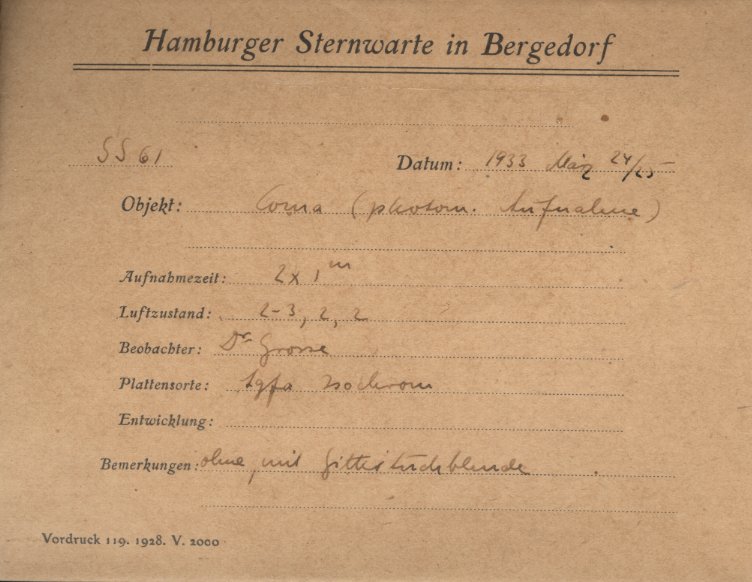 Hamburger Sternwarte in Bergedorf
SS 61 Datum: 1933 März 24/25
Objekt: Coma (photom. Aufnahme)
Aufnahmezeit: 2 x 1 m
Luftzustand: 2-3, 2, 2
Beobachter: Dr. Grosse
Plattensorte: Agfa Isochrom
Entwicklung:
Bemerkungen: ohne, mit
Vordruck 119. 1928. V. 2000